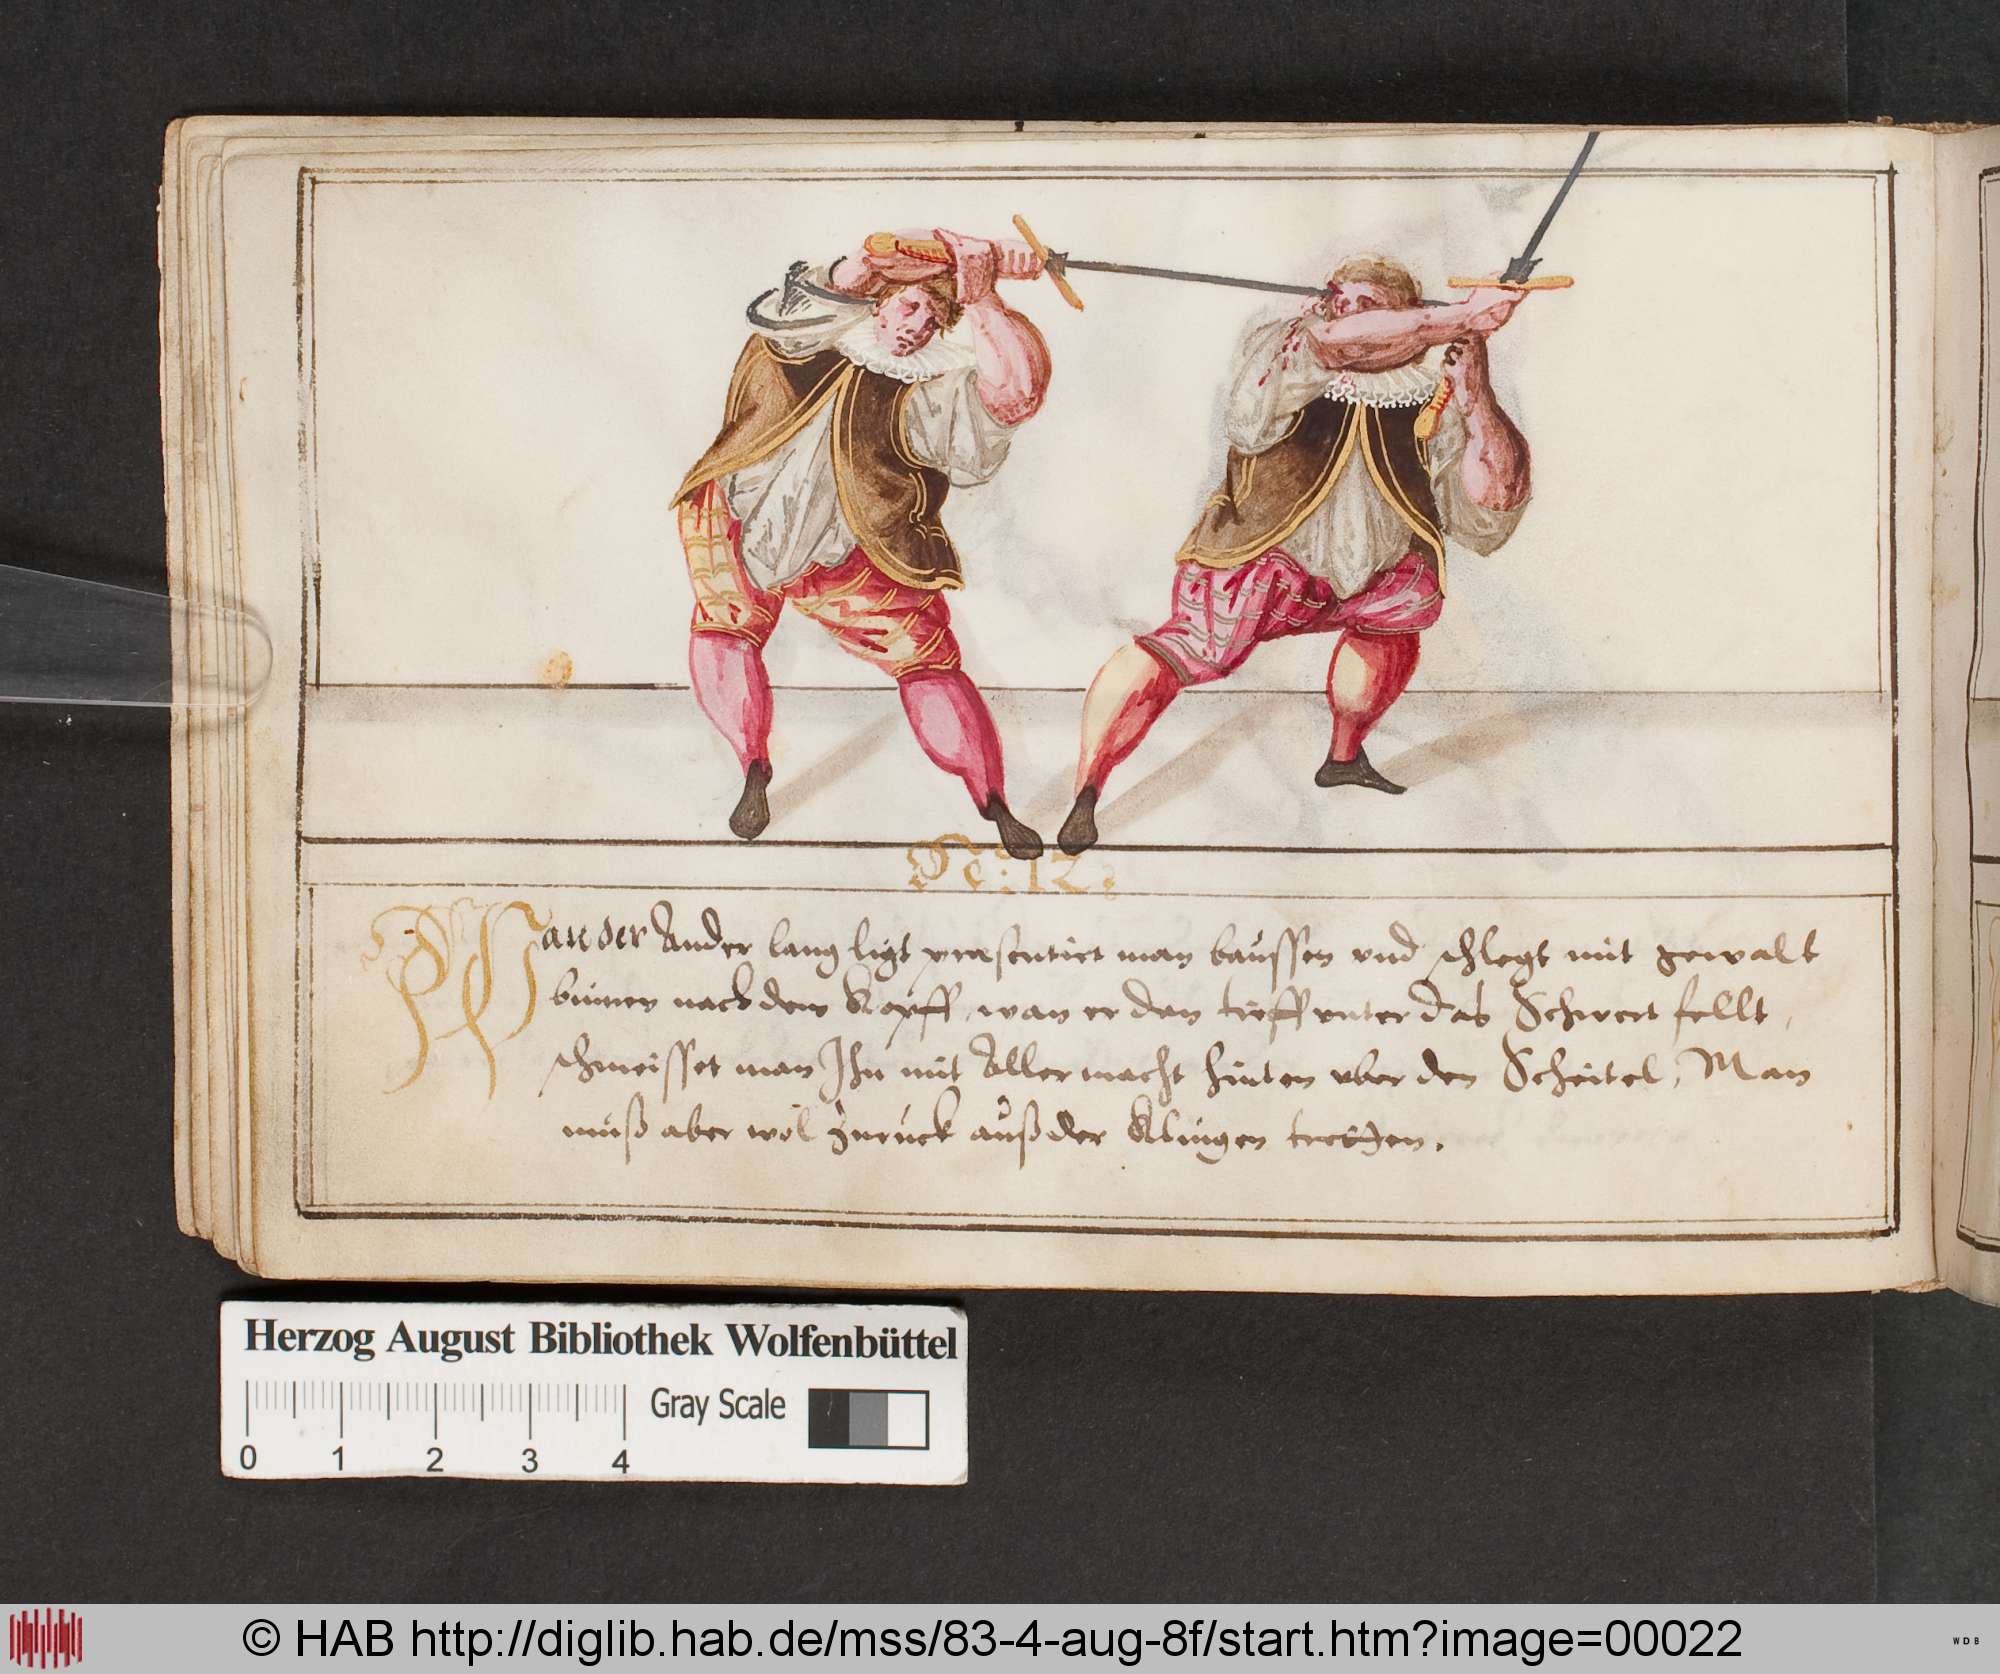 N: 12:
Wan der Ander lang ligt praesentirt man baussen vnd schlegt mit gewalt
binnen nach dem Kopff, wan er dan tieff vnter das Schwert fellt,
schmeisset man Ihn mit Aller macht hinten vber den Scheitel, Man
muß aber wol zuruck auß der Klingen tretten.
Herzog August Bibliothek Wolfenbüttel
Gray Scale
0 1 2 3 4
© HAB http://diglib.hab.de/mss/83-4-aug-8f/start.htm?image=00022
WDB